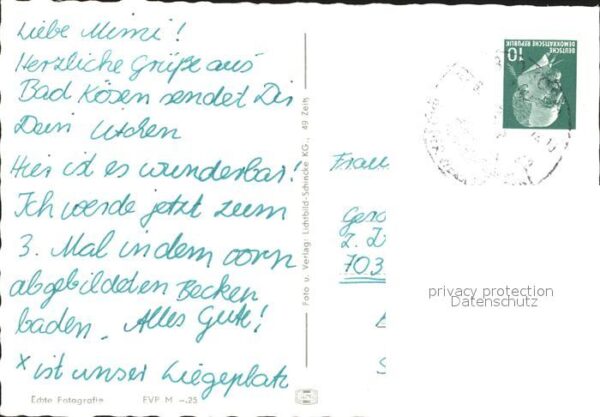 Liebe Mimi!
Herzliche Grüße aus
Bad Kösen sendet Dir
Dein
Hier ist es wunderbar!
Ich werde jetzt zum
3. Mal in dem vorn
abgebildeten Becken
baden. Alles Gute!
x ist unser Liegeplatz
Echte Fotografie EVP M -.25
Foto u. Verlag: Lichtbild-Schincke KG., 49 Zeitz
10
DEUTSCHE
DEMOKRATISCHE REPUBLIK
Frau
703
privacy protection
Datenschutz